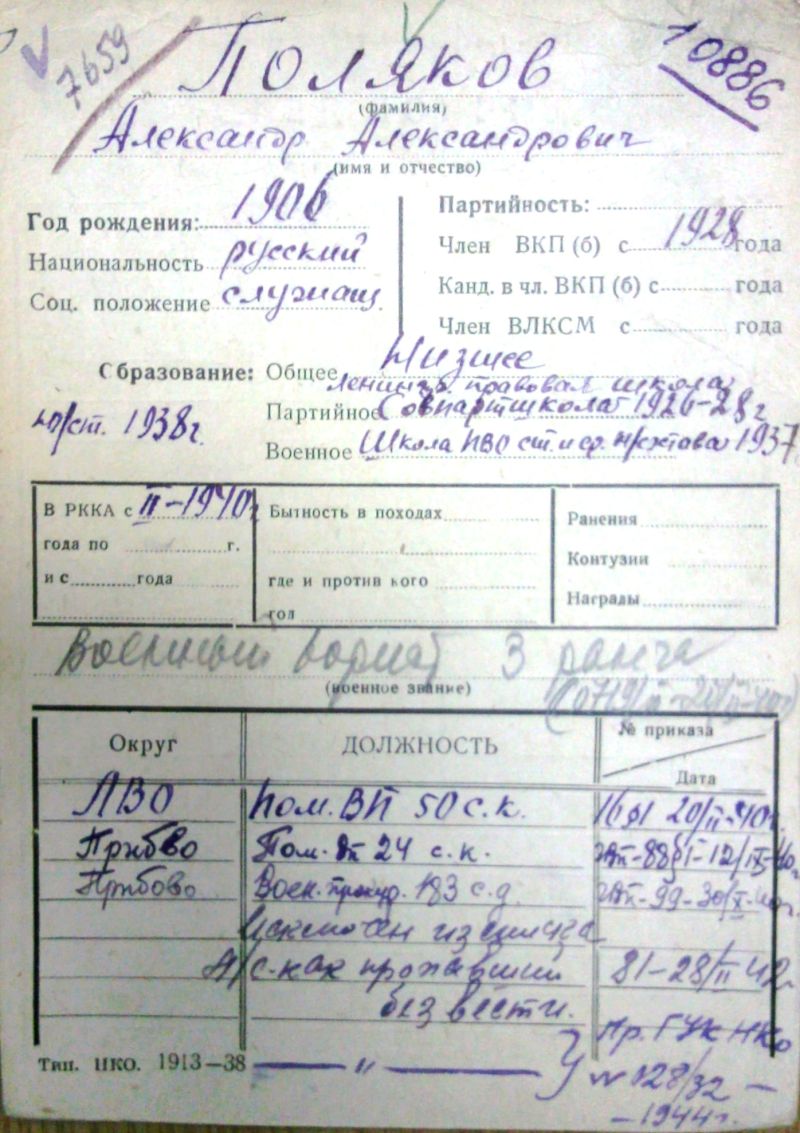 7659
Поляков
10886
(фамилия)
Александр Александрович
(имя и отчество)
Год рождения: 1906
Национальность русский
Соц. положение служащ.
Партийность:
Член ВКП (б) с 1928 года
Канд. в чл. ВКП (б) с года
Член ВЛКСМ с года
Образование: Общее Низшее
Ленингр. правовая школа
Партийное Совпартшкола 1926-28 г
1938 г.
Военное Школа ПВО 1937
В РККА с II-1940 г
года по г.
и с года
Бытность в походах
где и против кого
гол
Ранения
Контузии
Награды
Военный юрист 3 ранга
(военное звание)
Округ
ДОЛЖНОСТЬ
№ приказа
Дата
ЛВО Пом. ВП 50 с.к. 20/II-40г.
Прибво Пом. вп 24 с.к. 88
Прибово Воен. прокур. 183 с.д. 99-30/
Исключен из списка
л/с-как пропавший 81-28/II 42г
без вести.
Пр. ГУК НКО
Тип. НКО. 1913—38 — " —
№ 028/
-1944г.